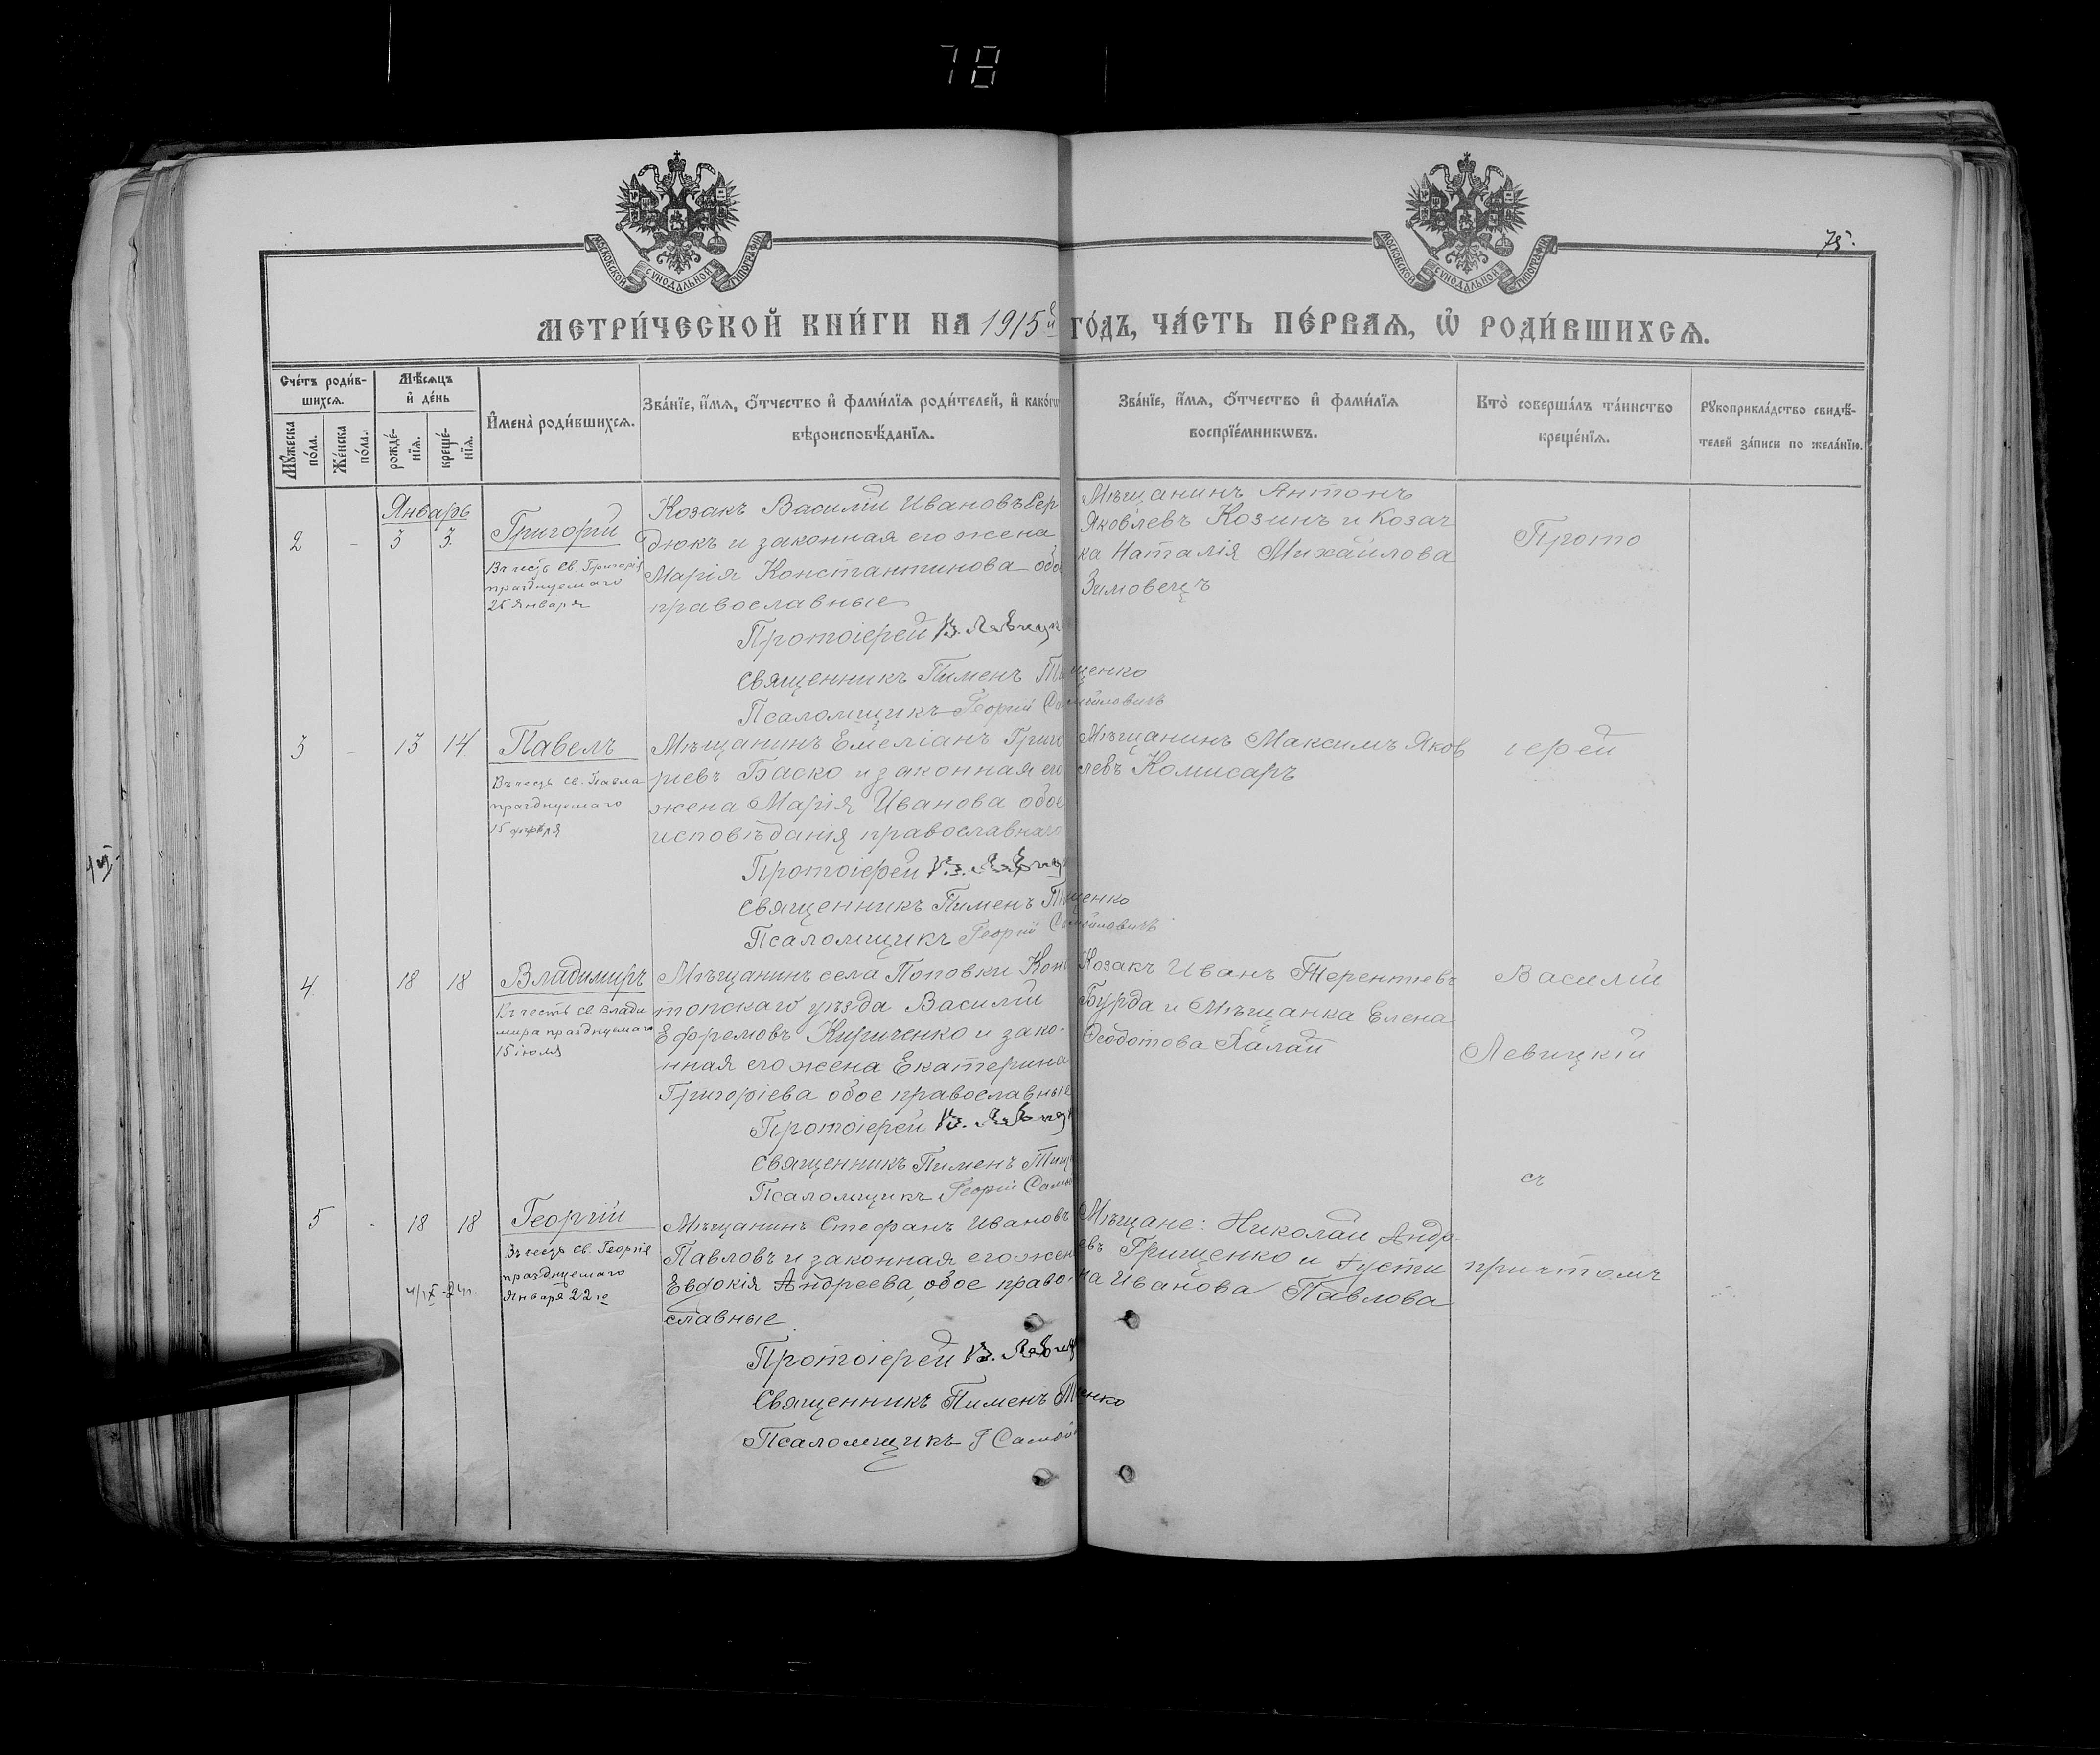 78
МОСКОВСКОЙ СѴНОДАЛЬНОЙ ТИПОГРАФІИ
МОСКОВСКОЙ СѴНОДАЛЬНОЙ ТИПОГРАФІИ
75.
МЕТРИ́ЧЕСКОЙ КНИ́ГИ НА 1915й ГО́ДЪ, ЧА́СТЬ ПЕ́РВАѦ, Ѽ РОДИ́ВШИХСѦ.
Сче́тъ роди́в-
шихсѧ.
Мꙋ́жеска по́ла.
Же́нска по́ла.
Мѣ́сѧцъ
и҆ де́нь
рожде́-
нїѧ.
креще́-
нїѧ.
И҆мена̀ роди́вшихсѧ.
Зва́нїе, и҆́мѧ, ѻ҆́тчество и҆ фами́лїѧ роди́телей, и҆ како́гѡ
вѣроисповѣ́данїѧ.
Зва́нїе, и҆́мѧ, ѻ҆́тчество и҆ фами́лїѧ
воспрїе́мникѡвъ.
Кто̀ соверша́лъ та́инство
креще́нїѧ.
Рꙋкоприкла́дство свидѣ́-
телей за́писи по жела́нїю.
Январь
2 - 3 3. Григорій
Въ честь Св. Григорія
празднуемаго
25 Января
Козакъ Василій Ивановъ Сер
дюкъ и законная его жена
Марія Константинова обое
православные
Протоіерей В. Левицкій
Священникъ Пименъ Тищенко
Псаломщикъ Георгій Самойловичъ
Мѣщанинъ Антонъ
Яковлевъ Козинъ и Козач
ка Наталія Михайлова
Зимовецъ
Прото
3 - 13 14 Павелъ
Въ честь св. Павла
празднуемаго
15 января
Мѣщанинъ Емеліанъ Григо
ріевъ Баско и законная его
жена Марія Иванова обое
исповѣданія православнаго
Протоіерей В. Левиц
Священникъ Пименъ Тищенко
Псаломщикъ Георгій Самойловичъ
Мѣщанинъ Максимъ Яков
левъ Комисаръ
іерей
4 18 18 Владимиръ
Въ честь св. Влади
мира празднуемаго
15 іюля
Мѣщанинъ села Поповки Коно
топскаго уѣзда Василій
Ефремовъ Кириченко и зако-
нная его жена Екатерина
Григоріева обое православные
Протоіерей В. Левиц
Священникъ Пименъ Тищ
Псаломщикъ Георгій Самой
Козакъ Иванъ Терентіевъ
Бурда и Мѣщанка Елена
Ѳеодотова Палай
Василій
Левицкій
съ
5 - 18 18 Георгій
Въ честь св. Георгія
празднуемаго
Января 22го
Мѣщанинъ Стефанъ Ивановъ
Павловъ и законная его жена
Евдокія Андреева, обое право-
славные
Протоіерей В. Левиц
Священникъ Пименъ Тищенко
Псаломщикъ Г Самой
Мѣщане: Николай Андре-
евъ Грищенко и Густи
на Иванова Павлова
причтомъ